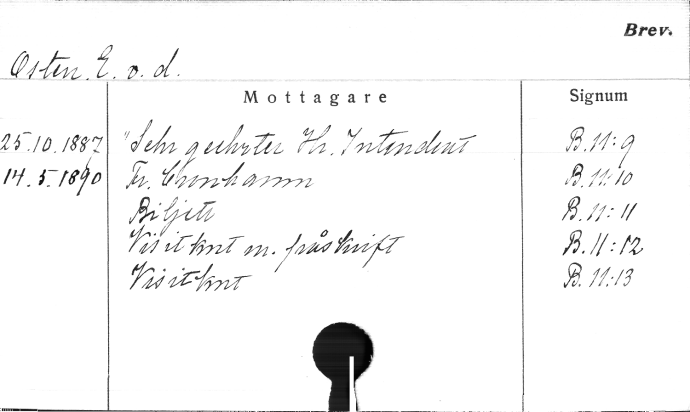 Brev.
Osten. E. v. d.
Mottagare Signum
25.10.1887 "Sehr geehrter Hr. Intendent B.11:9
14.5.1890 Fr. Cronhamn B.11:10
Biljett B.11:11
Visitkort m. påskrift B.11:12
Visitkort B.11:13